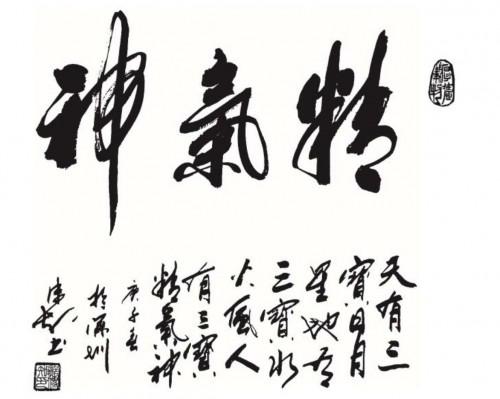 精氣神
天有三
寶日月
星地有
三寶水
火風人
有三寶
精氣神
庚子春
於深圳